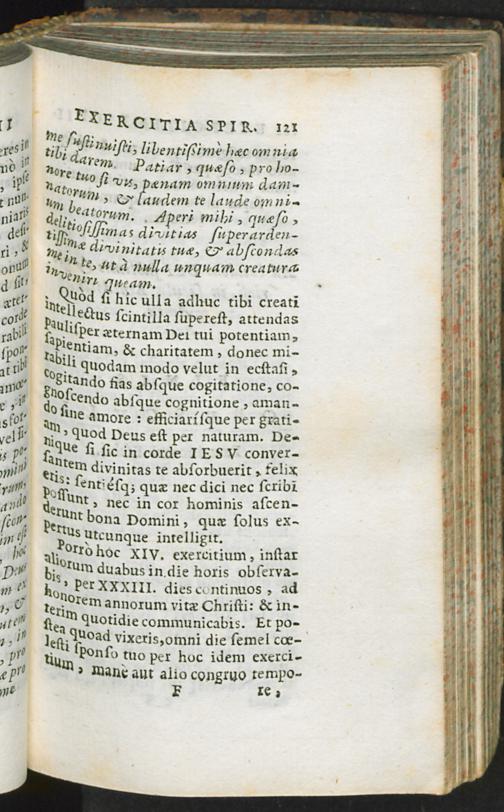 EXERCITIA SPIR. 121
me sustinuisti, libentißimè hæc omnia
tibi darem. Patiar, quæso, pro ho-
nore tuo si vis, pœnam omnium dam-
natorum, & laudem te laude omni-
um beatorum. Aperi mihi, quæso,
delitiosissimas divitias superarden-
tissimæ divinitatis tuæ, & abscondas
me in te, ut à nulla unquam creatura
inveniri queam.
Quòd si hic ulla adhuc tibi creati
intellectus scintilla superest, attendas
paulisper æternam Dei tui potentiam,
sapientiam, & charitatem, donec mi-
rabili quodam modo velut in ecstasi,
cogitando fias absque cogitatione, co-
gnoscendo absque cognitione, aman-
do sine amore : efficiarísque per grati-
am, quod Deus est per naturam. De-
nique si sic in corde IESV conver-
santem divinitas te absorbuerit, felix
eris: sentiésq; quæ nec dici nec scribi
possunt, nec in cor hominis ascen-
derunt bona Domini, quæ solus ex-
pertus utcunque intelligit.
Porrò hoc XIV. exercitium, instar
aliorum duabus in die horis observa-
bis, per XXXIII. dies continuos, ad
honorem annorum vitæ Christi: & in-
terim quotidie communicabis. Et po-
stea quoad vixeris, omni die semel cœ-
lesti sponso tuo per hoc idem exerci-
tium, manè aut alio congruo tempo-
F re,